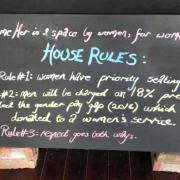 Her is a space by women, for wome
HOUSE RULES:
Rule#1: women have priority seating
#2: men will be charged an 18% pre
the gender pay gap (2016) which
donated to a women's service.
Rule#3: respect goes both ways.